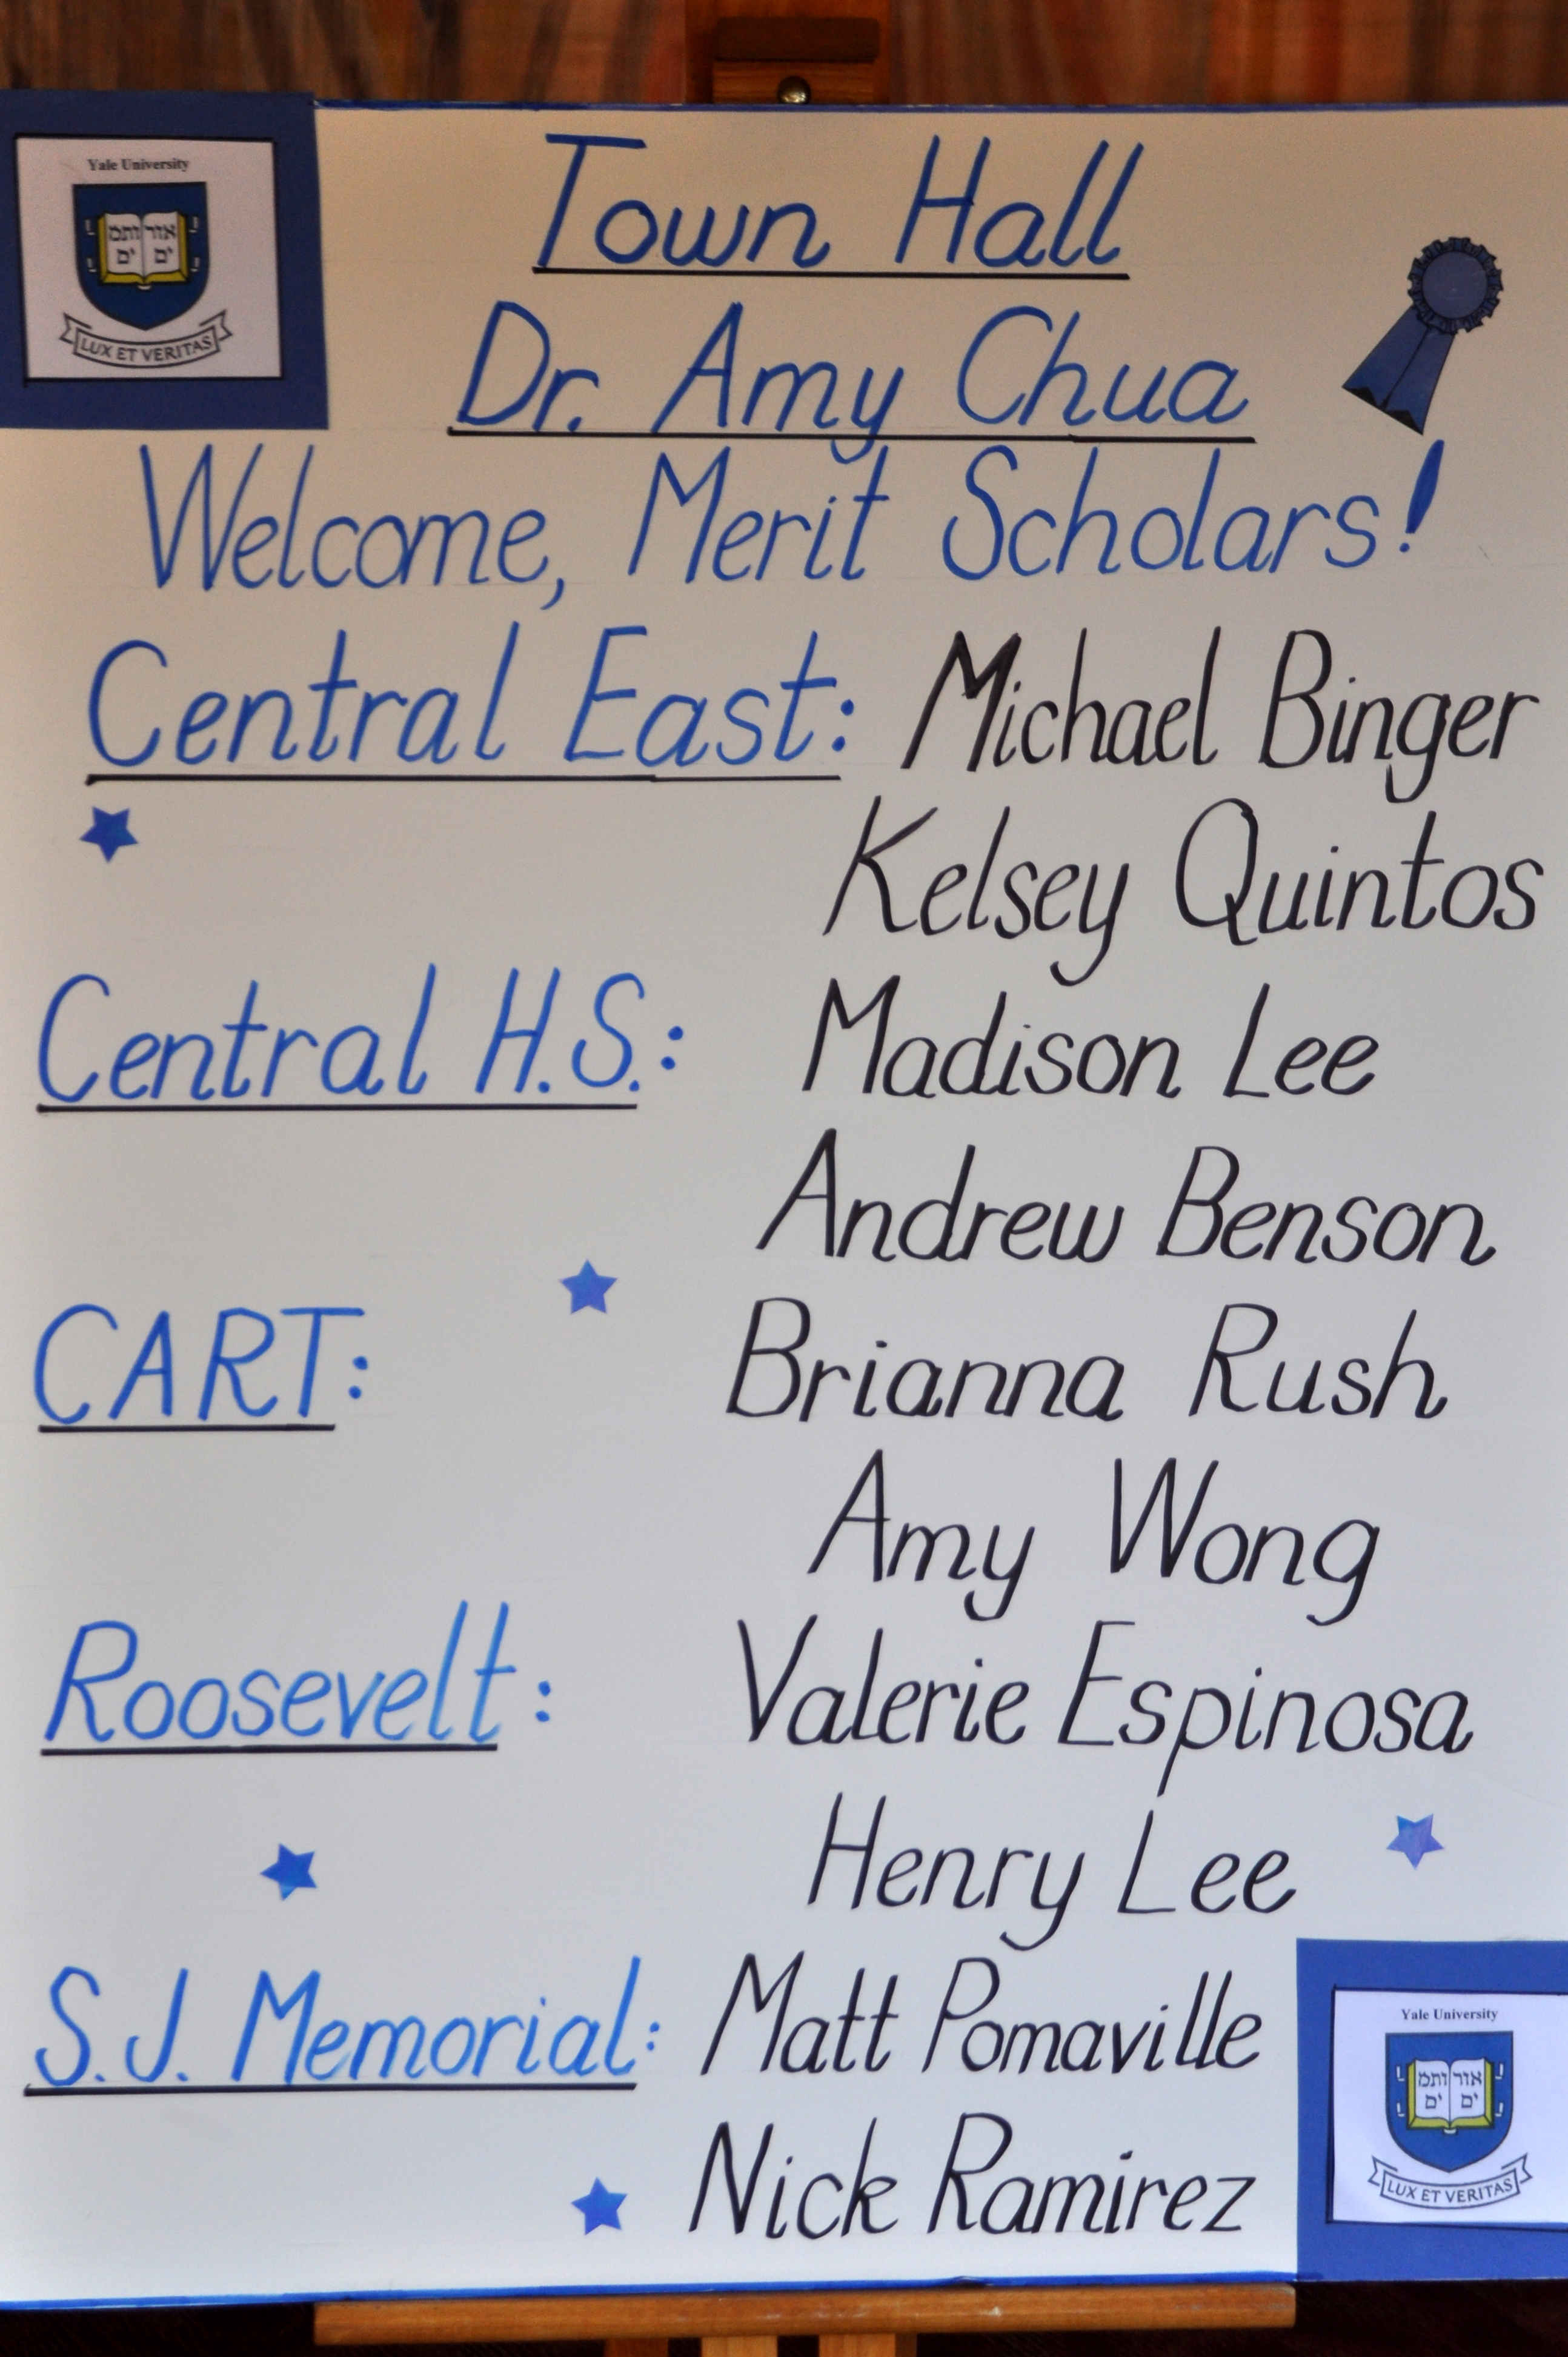 Yale University
אור ותמ
ים ים
LUX ET VERITAS
Town Hall
Dr. Amy Chua
Welcome, Merit Scholars!
Central East: Michael Binger
Kelsey Quintos
Central H.S.: Madison Lee
Andrew Benson
CART: Brianna Rush
Amy Wong
Roosevelt: Valerie Espinosa
Henry Lee
S.J. Memorial: Matt Pomaville
Nick Ramirez
Yale University
אור ותמ
ים ים
LUX ET VERITAS